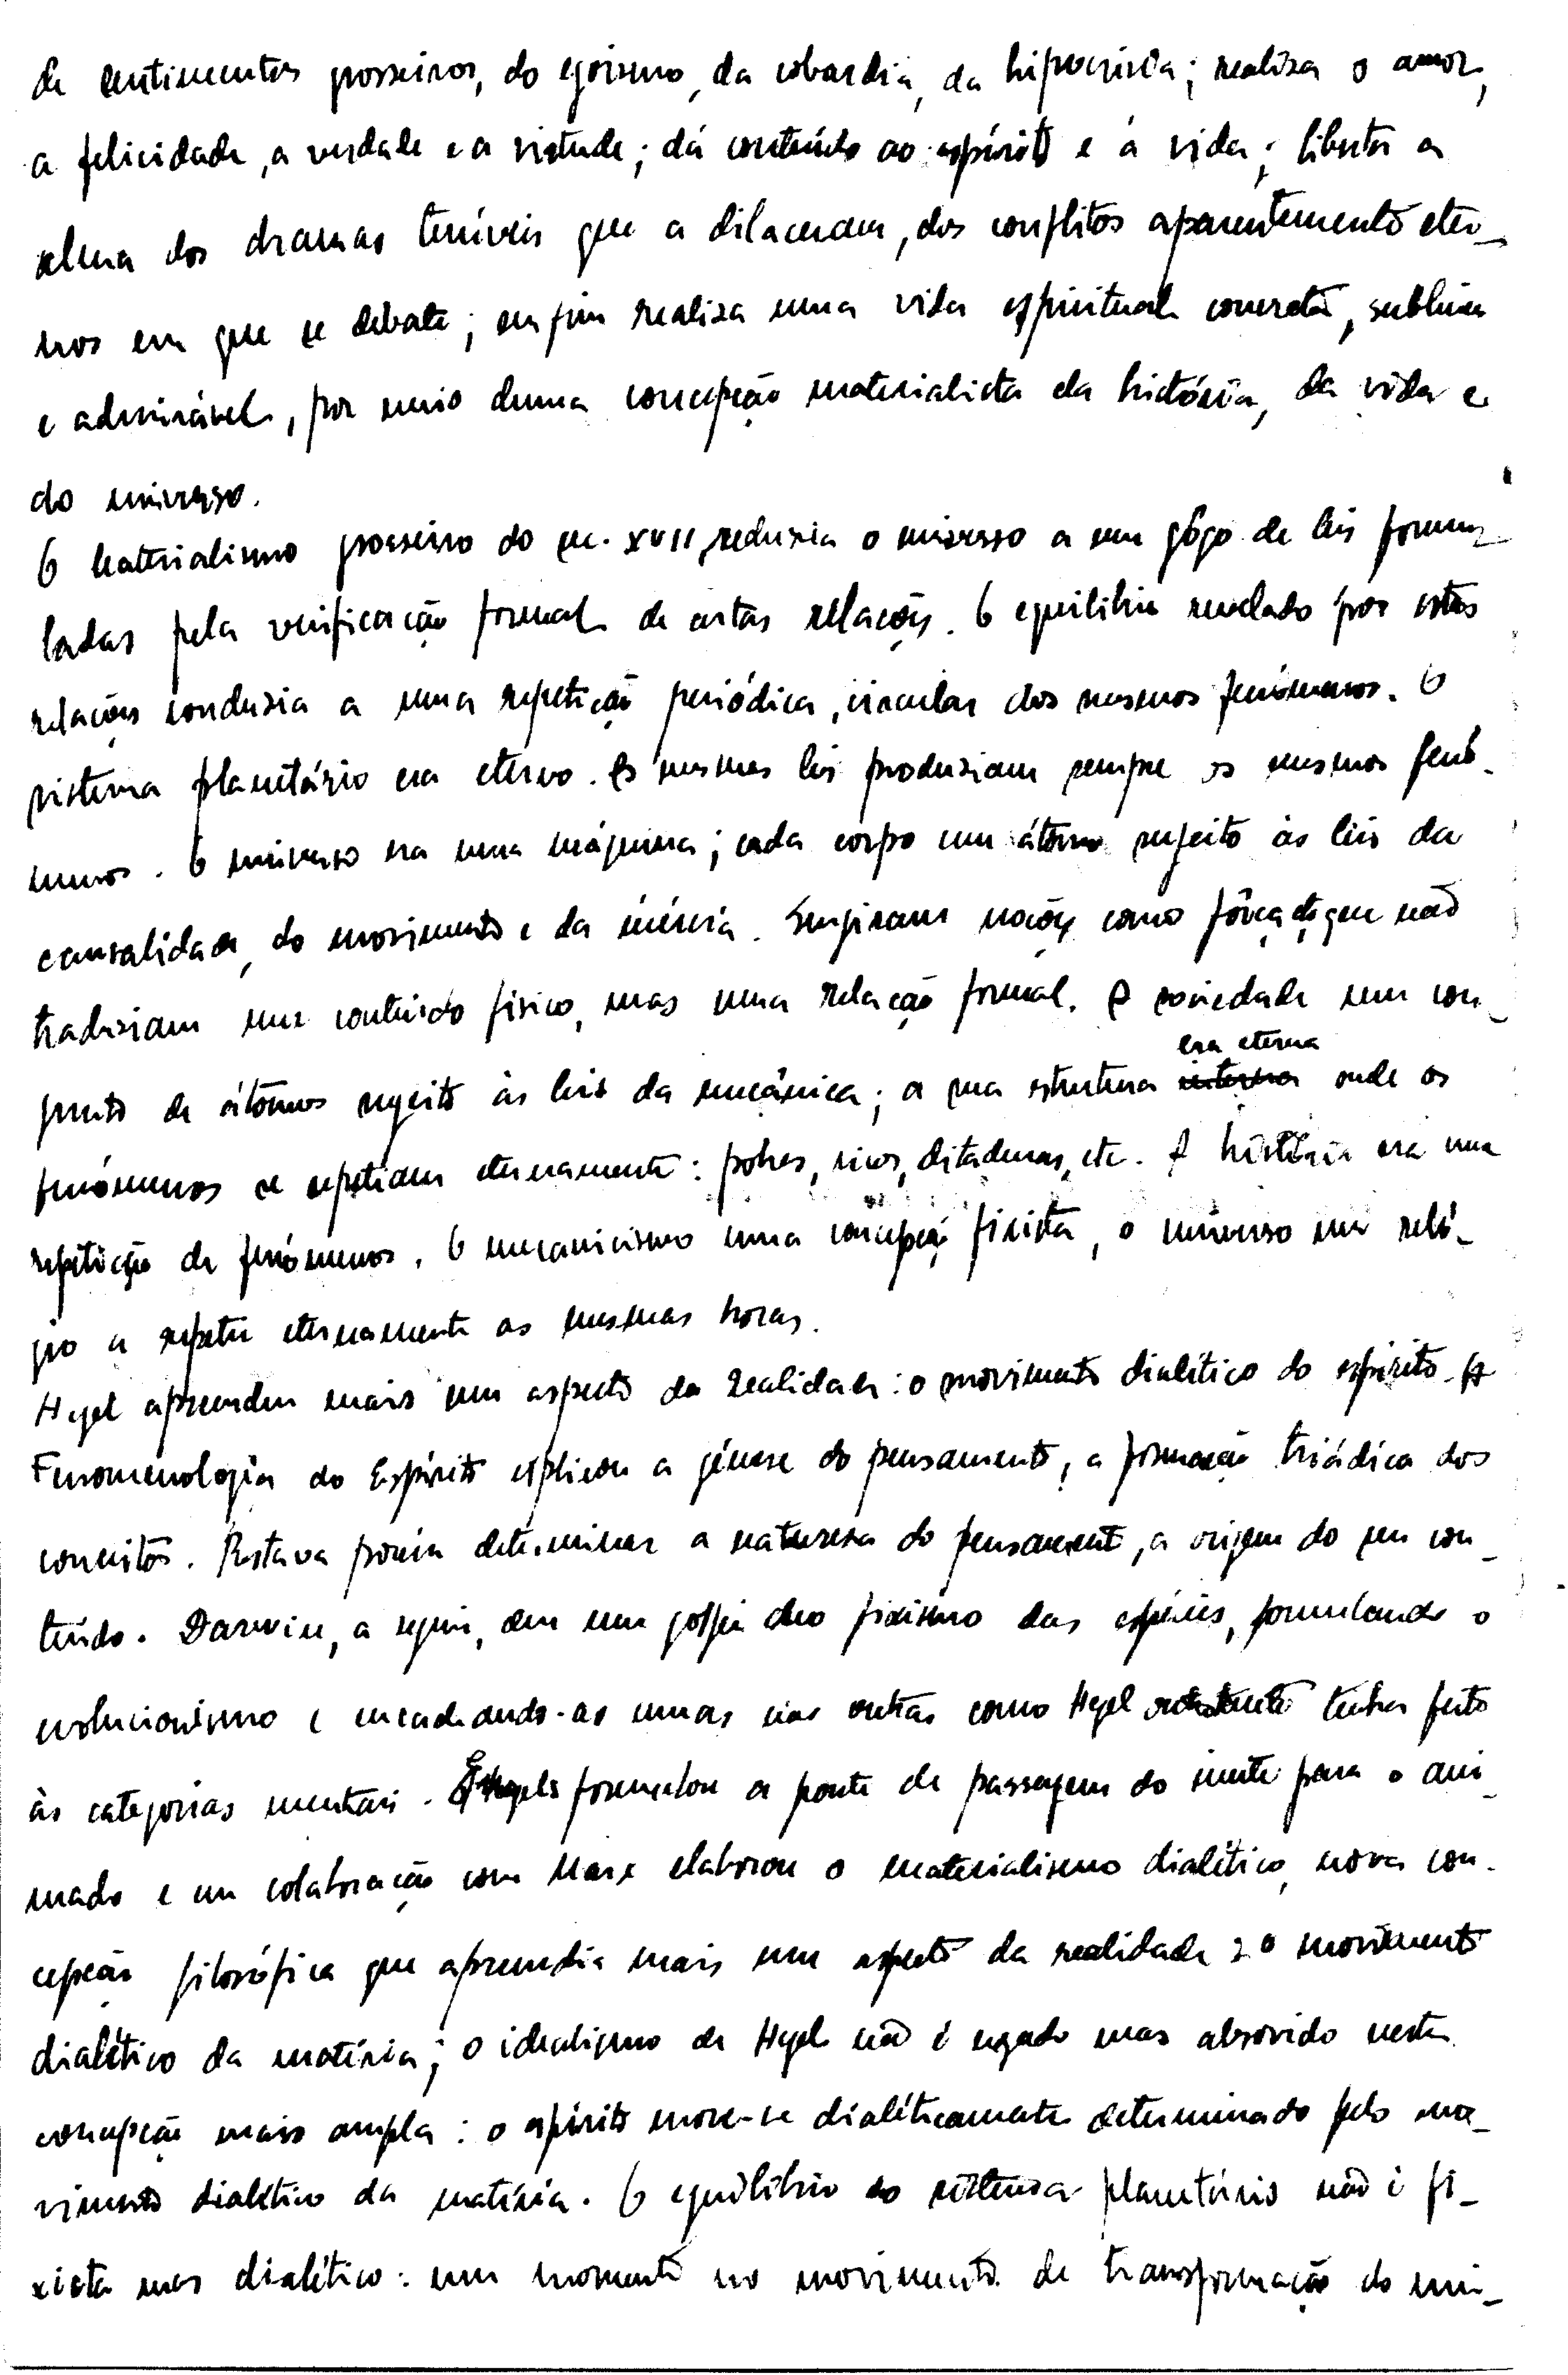 de sentimentos grosseiros, do egoismo, da cobardia, da hipocrisia; realiza o amor,
a felicidade, a verdade e a virtude; dá conteúdo ao espírito e à vida; liberta a
alma dos dramas terríveis que a dilaceram, dos conflitos aparentemente eter-
nos em que se debate; enfim realiza uma vida espiritual concreta, sublime
e admirável, por meio duma concepção materialista da história, da vida e
do universo.
O materialismo grosseiro do sec. XVII, reduzia o universo a um jôgo de leis formu-
ladas pela verificação formal de certas relações. O equilibrio revelado por estas
relações conduzia a uma repetição periódica, circular dos mesmos fenómenos. O
sistema planetário era eterno. As mesmas leis produziam sempre os mesmos fenó-
menos. O universo era uma máquina; cada corpo um átomo sujeito às leis da
causalidade, do movimento e da inércia. Surgiram noções como fôrça que não
traduziam um conteúdo fisico, mas uma relação formal. A sociedade um con-
junto de átomos sujeito às leis da mecânica; a sua estrutura era eterna onde os
fenómenos se repetiam eternamente: pobres, ricos, ditaduras, etc. A história era uma
repetição de fenómenos. O mecanicismo uma concepção fixista, o universo um reló-
gio a repetir eternamente as mesmas horas.
Hegel apreendeu mais um aspecto da realidade: o movimento dialético do espírito. A
Fenomenologia do Espírito explicou a génese do pensamento, a formação triádica dos
conceitos. Restava porém determinar a natureza do pensamento, a origem do seu con-
teúdo. Darwin, a seguir, deu um golpe no fixismo das espécies, formulando o
evolucionismo e encadeando-as umas nas outras como Hegel tinha feito
às categorias mentais. Engels formulou a ponte de passagem do inerte para o ani-
mado e em colaboração com Marx elaborou o materialismo dialético, nova con-
cepção filosófica que apreendia mais um aspecto da realidade: o movimento
dialético da matéria; o idealismo de Hegel não é negado mas absorvido nesta
concepção mais ampla: o espírito move-se dialéticamente determinado pelo mo-
vimento dialético da matéria. O equilíbrio do sistema planetário não é fi-
xista mas dialético: um momento no movimento de transformação do uni-